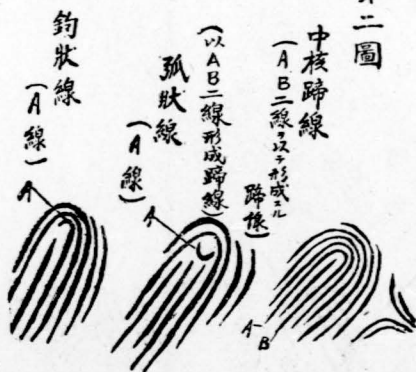 二圖
中核蹄線
(AB二線ヲ以テ形成スル
蹄線)
(以AB二線形成蹄線)
弧狀線
(A線)
鈎狀線
(A線)
A
B
A
A